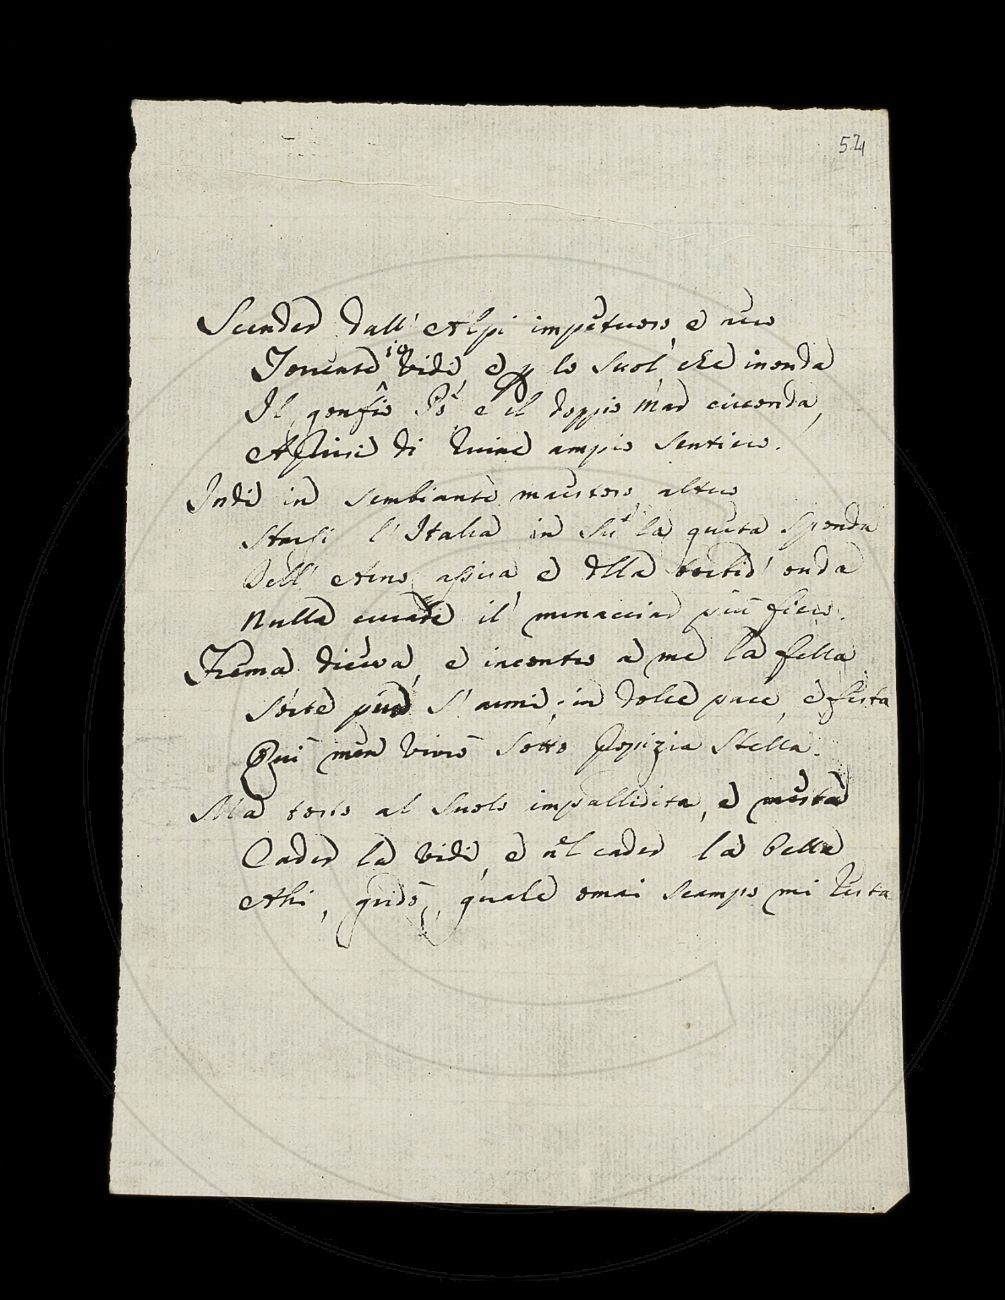 52
Scender dall' Alpi impetuoso e nero
Torrente io vidi, e p lo Suol che inonda
Il gonfio Pò, e il doppio Mar circonda,
Aprirsi di ruine ampio Sentiero.
Indi in Sembiante maestoso altero
Starsi l'Italia in Su la queta Sponda
Dell' Arno assisa e dlla torbid' onda
Nulla curare il minacciar più fiero.
Frema diceva, e incontro a me la fella
Sorte pur S'armi; in dolce pace, e festa
Qui men vivrò Sotto Propizia Stella.
Ma tosto al Suolo impallidita, e mesta
Cader la vidi, e nel cader la bella
Ahi, gridò, quale omai Scampo mi resta